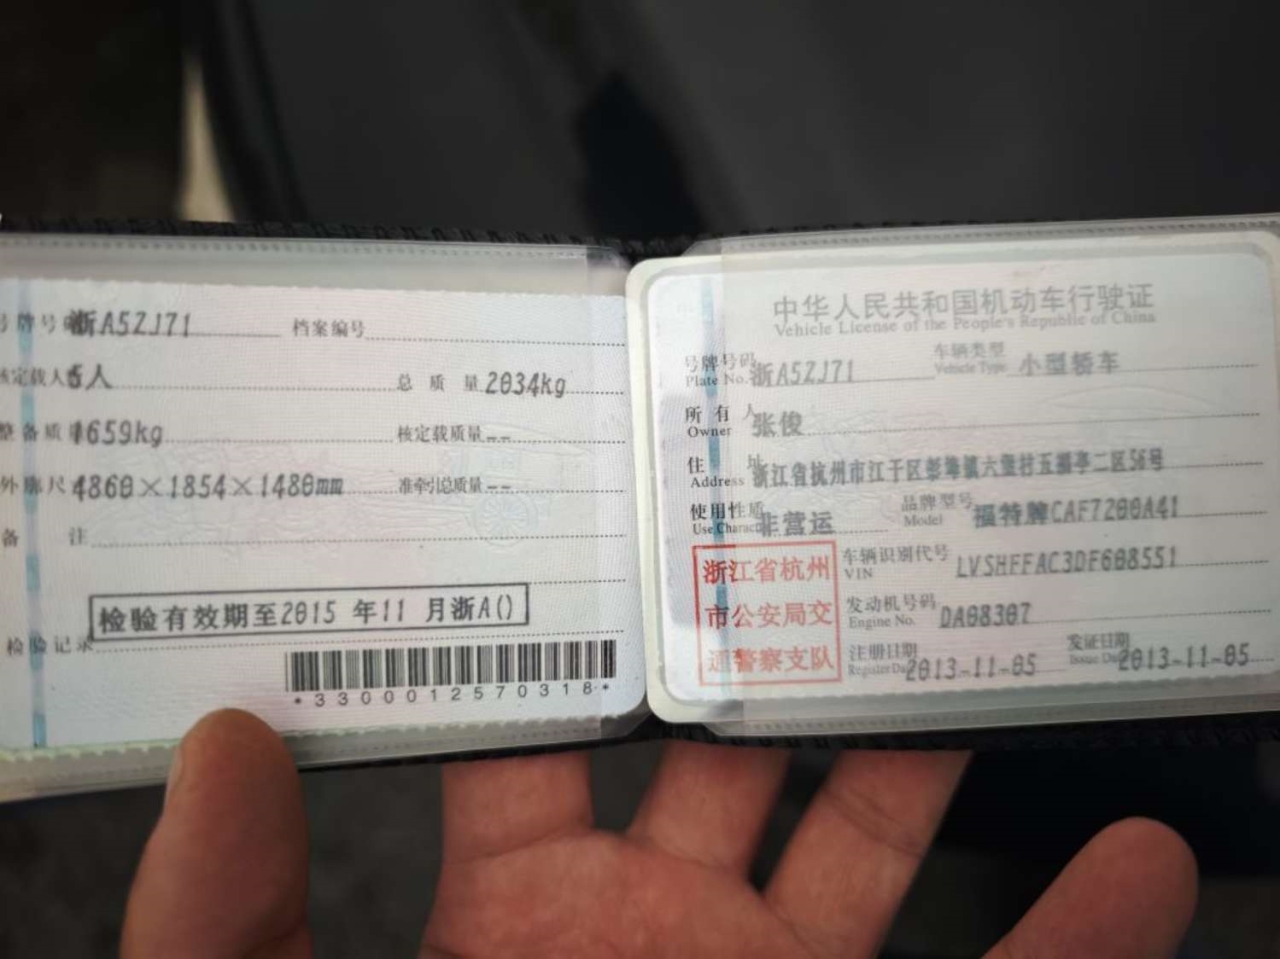 号牌号码 浙A5ZJ71 档案编号
核定载人数 5人 总质量 2034kg
整备质量 1659kg 核定载质量 --
外廓尺寸 4860×1854×1480mm 准牵引总质量 --
备注
检验有效期至2015 年11 月浙A()
检验记录
*3300012570318*
中华人民共和国机动车行驶证
Vehicle License of the People's Republic of China
号牌号码 浙A5ZJ71 车辆类型 小型轿车
Plate No. Vehicle Type
所有人 张俊
Owner
住址 浙江省杭州市江干区彭埠镇六堡村五福亭二区56号
Address
使用性质 非营运 品牌型号 福特牌CAF7200A41
Use Character Model
浙江省杭州
市公安局交
通警察支队
车辆识别代号 LVSHFFAC3DF608551
VIN
发动机号码 DA08307
Engine No.
注册日期 2013-11-05 发证日期 2013-11-05
Register Date Issue Date